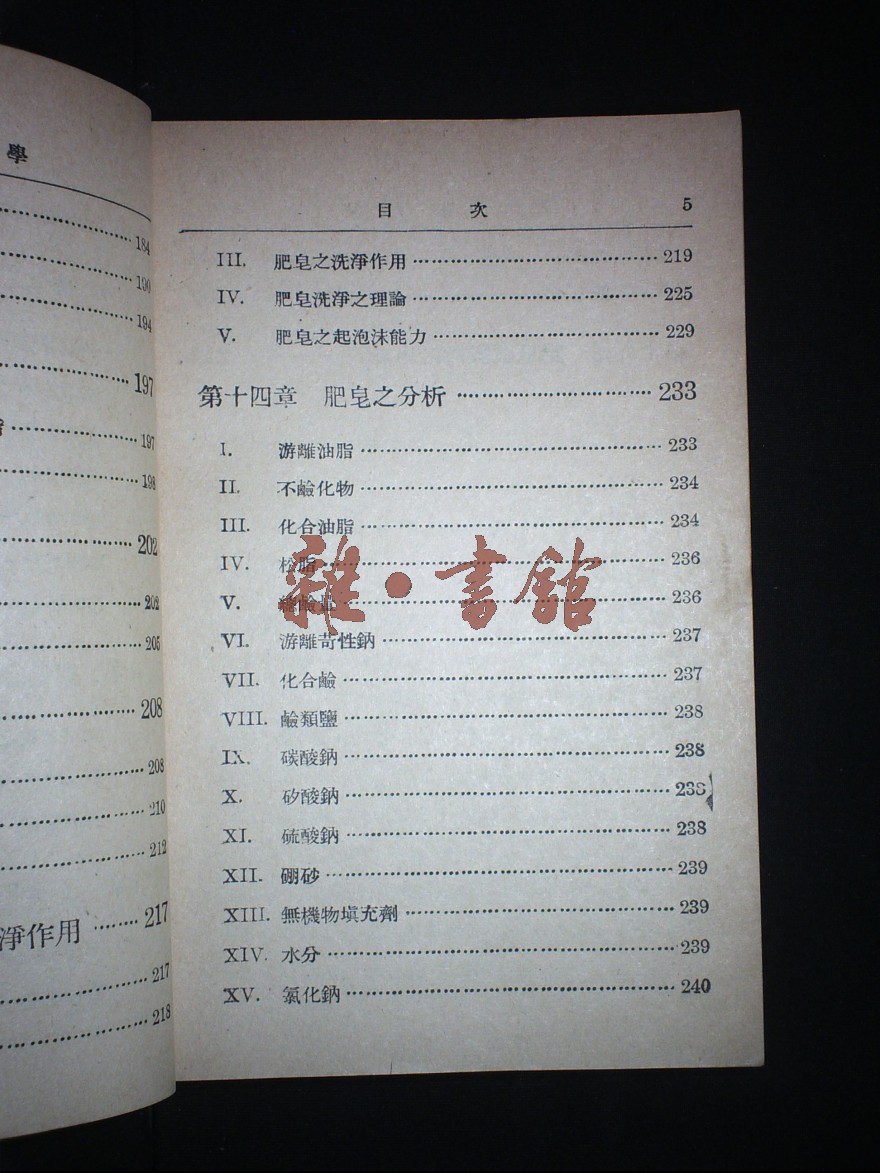 學
184
190
194
197
197
198
202
202
205
208
208
210
212
淨作用 ········ 217
217
218
目 次 5
III. 肥皂之洗淨作用 ········ 219
IV. 肥皂洗淨之理論 ········ 225
V. 肥皂之起泡沫能力 ········ 229
第十四章 肥皂之分析 ········ 233
I. 游離油脂 ········ 233
II. 不鹼化物 ········ 234
III. 化合油脂 ········ 234
IV. 松脂 ········ 236
V. 總鹼量 ········ 236
VI. 游離苛性鈉 ········ 237
VII. 化合鹼 ········ 237
VIII. 鹼類鹽 ········ 238
IX. 碳酸鈉 ········ 238
X. 矽酸鈉 ········ 238
XI. 硫酸鈉 ········ 238
XII. 硼砂 ········ 239
XIII. 無機物塡充劑 ········ 239
XIV. 水分 ········ 239
XV. 氯化鈉 ········ 240
雜·書館